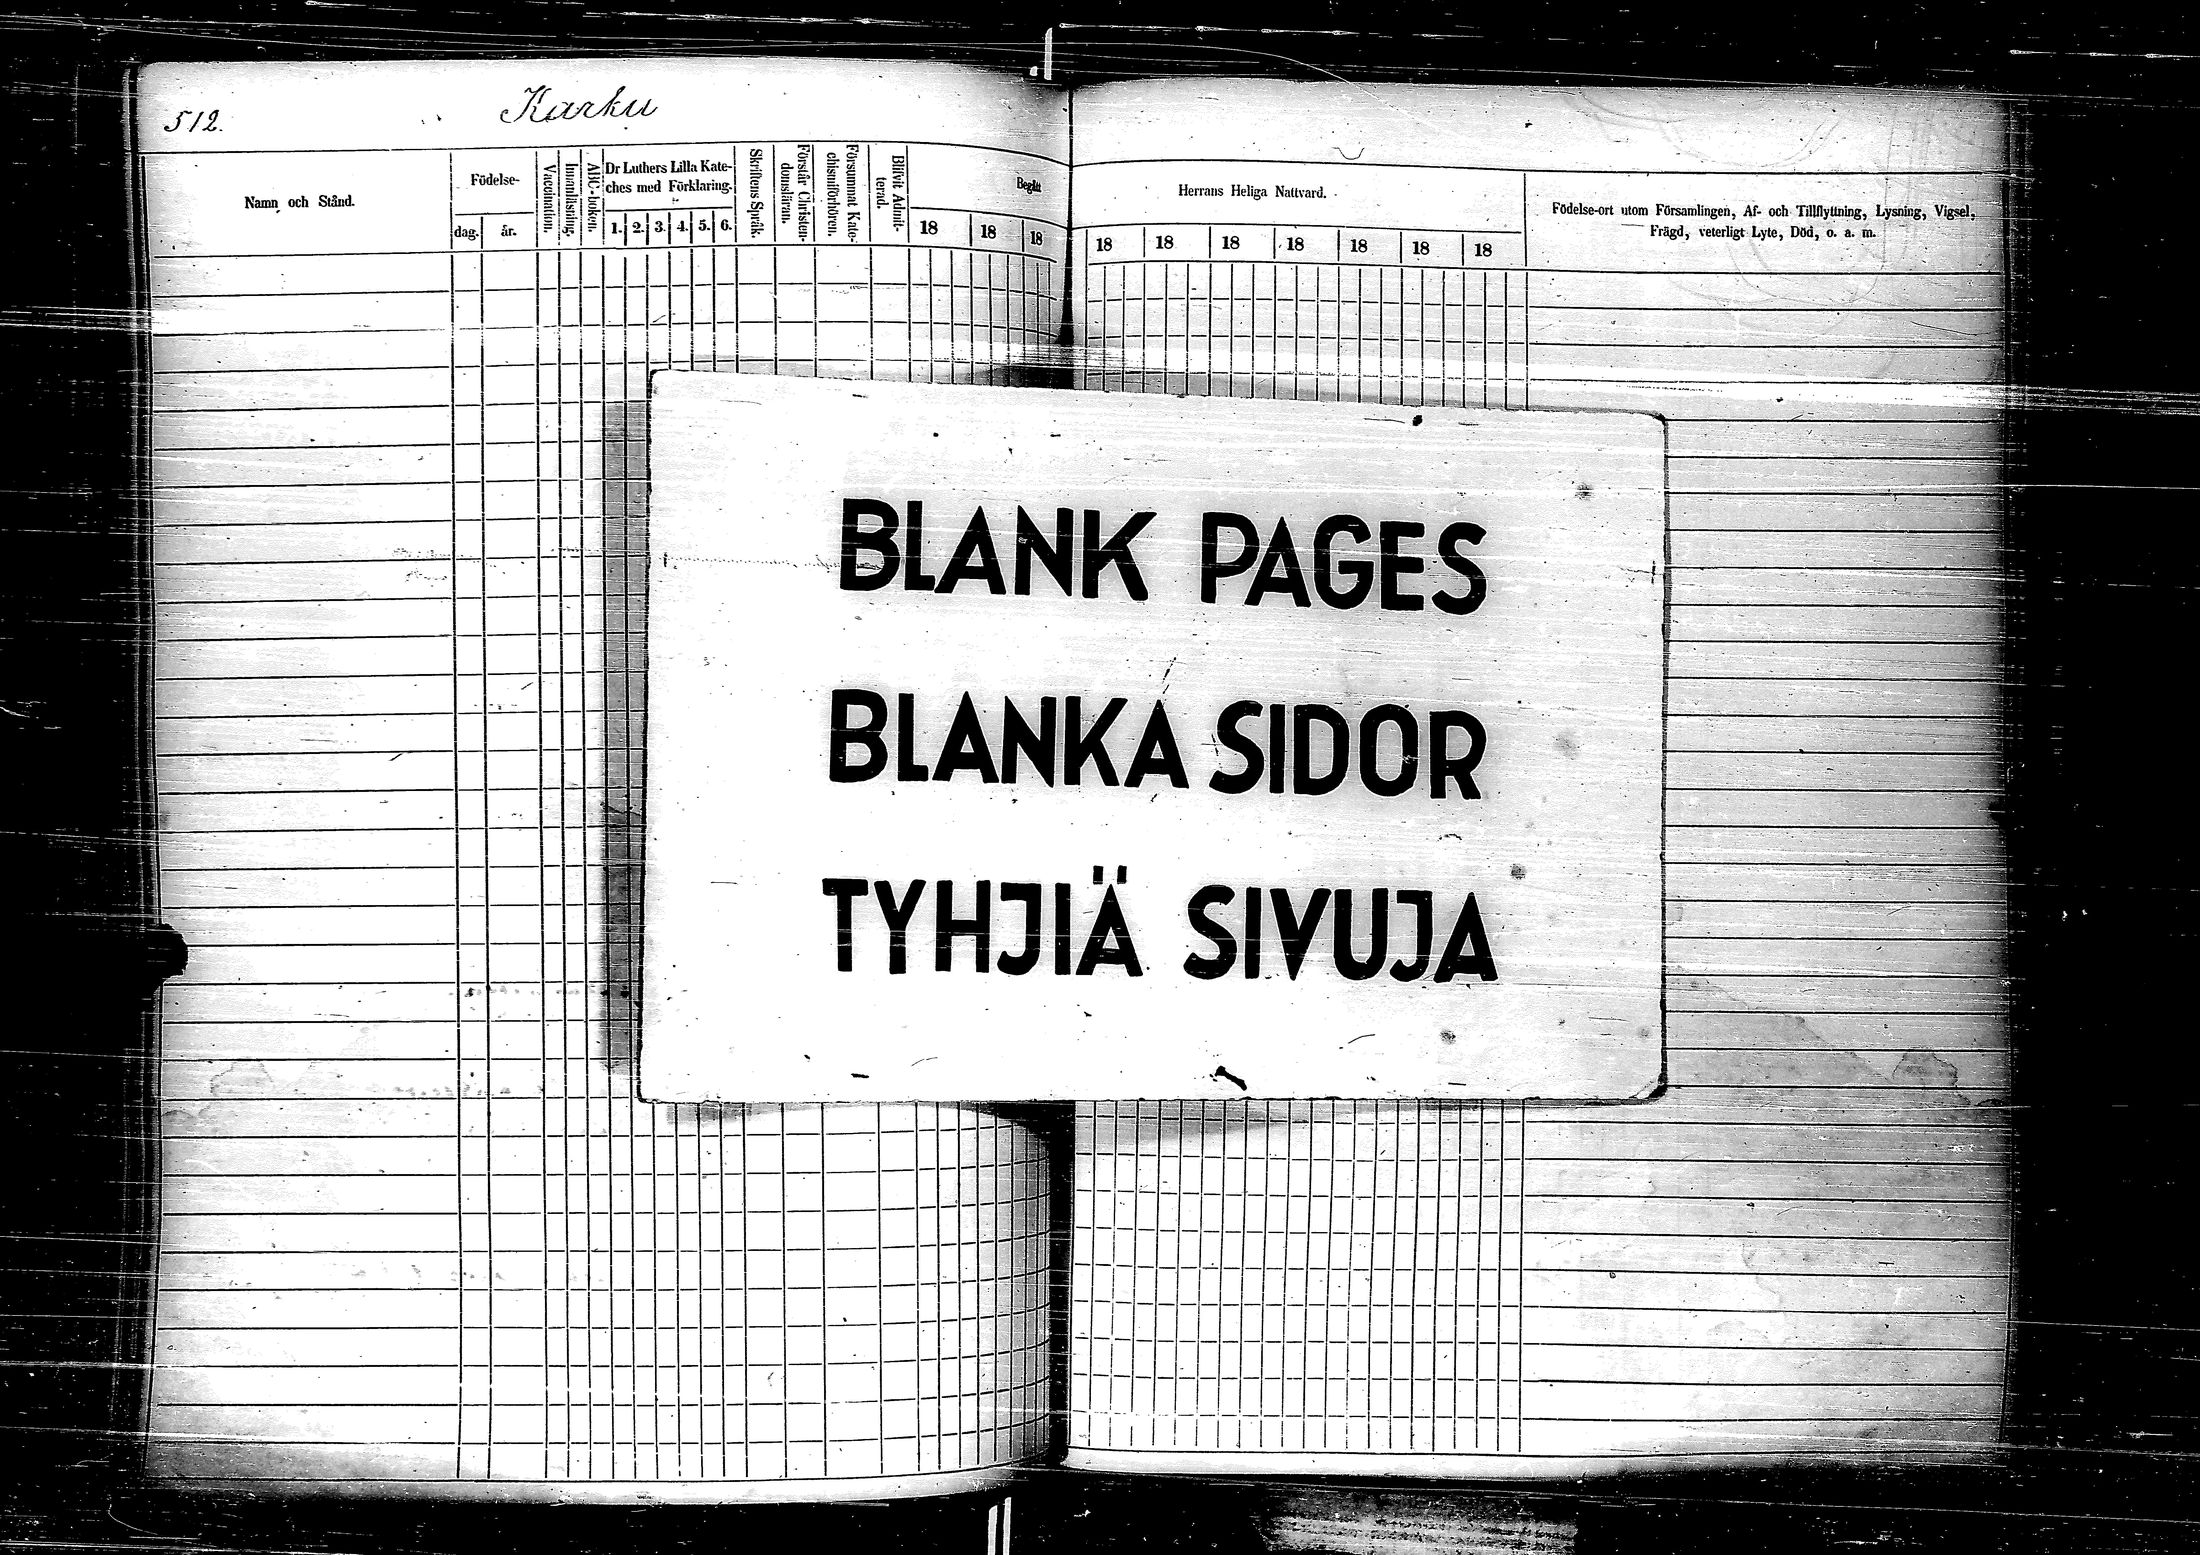 512.
Karku
Namn och Stånd.
Födelse-
dag.
år.
Vaccination.
Innanläsning.
ABC-boken.
Dr Luthers Lilla Kate-
ches med Förklaring.
1. 2. 3. 4. 5. 6.
Skriftens Språk.
Förstår Christen-
domsläran.
Försummat Kate-
chismiförhören.
Blifvit Admit-
terad.
Begått
18 18 18
Herrans Heliga Nattvard.
18 18 18 18 18 18 18
Födelse-ort utom Församlingen, Af- och Tillflyttning, Lysning, Vigsel,
Frägd, veterligt Lyte, Död, o. a. m.
BLANK PAGES
BLANKA SIDOR
TYHJIÄ SIVUJA